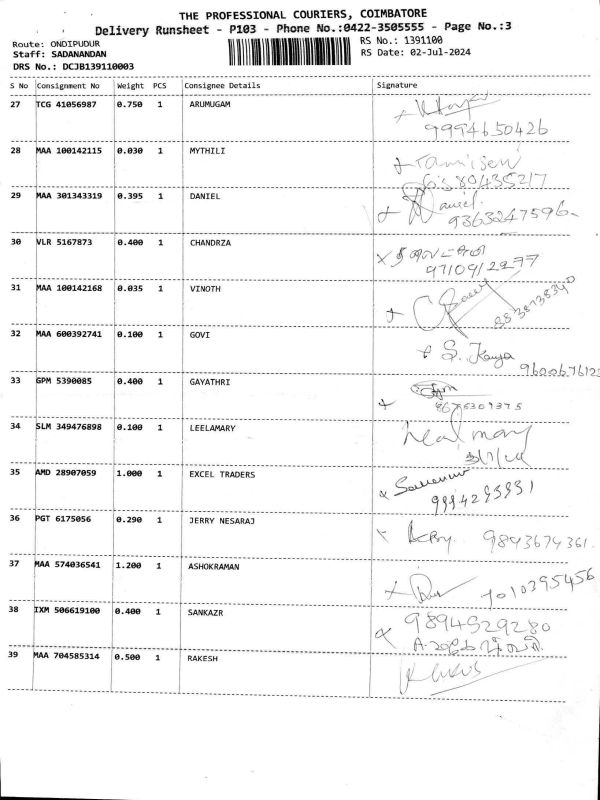 THE PROFESSIONAL COURIERS, COIMBATORE
Delivery Runsheet - P103 - Phone No.:0422-3505555 - Page No.:3
Route: ONDIPUDUR
RS No.: 1391100
Staff: SADANANDAN
RS Date: 02-Jul-2024
DRS No.: DCJB139110003
S No Consignment No Weight PCS Consignee Details Signature
27 TCG 41056987 0.750 1 ARUMUGAM
9994650426
28 MAA 100142115 0.030 1 MYTHILI
29 MAA 301343319 0.395 1 DANIEL Daniel.
9363247596
30 VLR 5167873 0.400 1 CHANDRZA
9710912277
31 MAA 100142168 0.035 1 VINOTH
32 MAA 600392741 0.100 1 GOVI S. Kavya
33 GPM 5390085 0.400 1 GAYATHRI
34 SLM 349476898 0.100 1 LEELAMARY
35 AMD 28907059 1.000 1 EXCEL TRADERS
36 PGT 6175056 0.290 1 JERRY NESARAJ 9843674361.
37 MAA 574036541 1.200 1 ASHOKRAMAN
38 IXM 506619100 0.400 1 SANKAZR
39 MAA 704585314 0.500 1 RAKESH